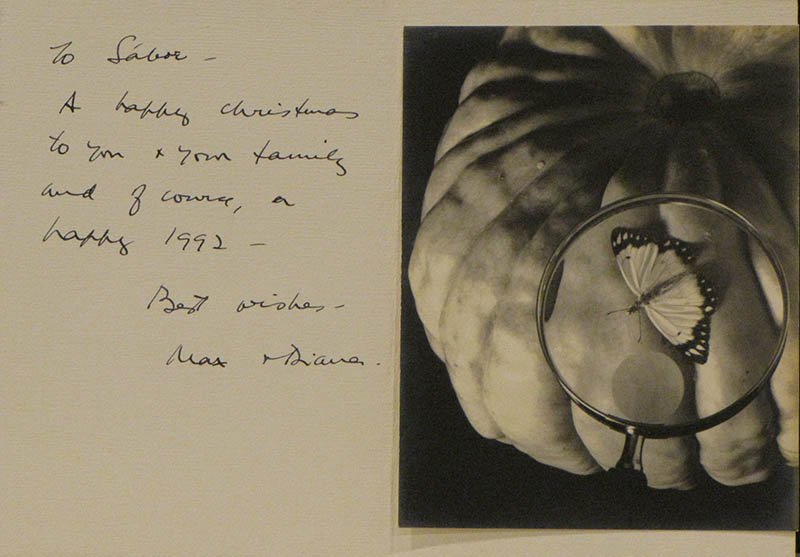 To Gábor –
A happy christmas
to you & your family
and of course, a
happy 1992 –
Best wishes –
Max & Diana.